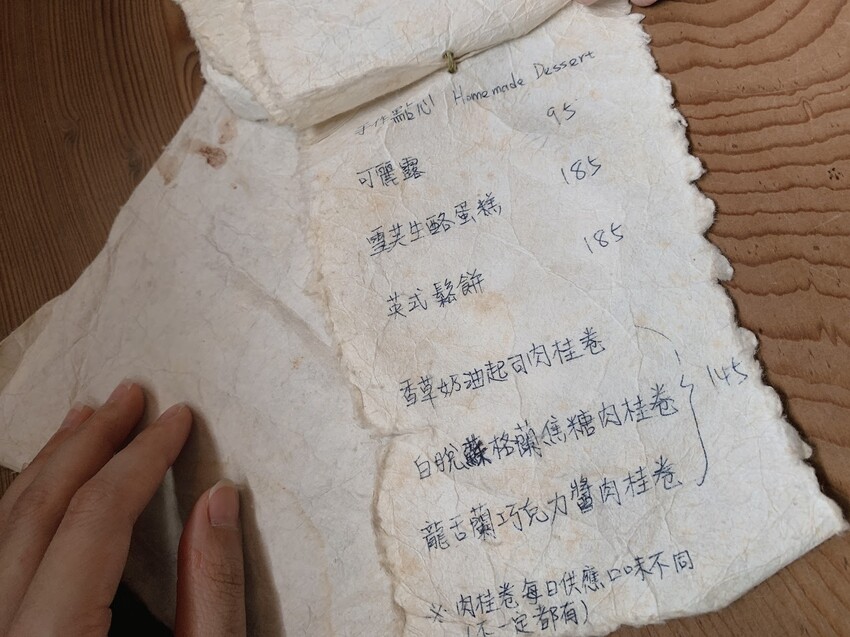 點心 Homemade Dessert
可麗露 95
雪芙生酪蛋糕 185
英式鬆餅 185
香草奶油起司肉桂卷
白脫蘇格蘭焦糖肉桂卷 145
龍舌蘭巧克力醬肉桂卷
※ 肉桂卷每日供應口味不同
(不一定都有)